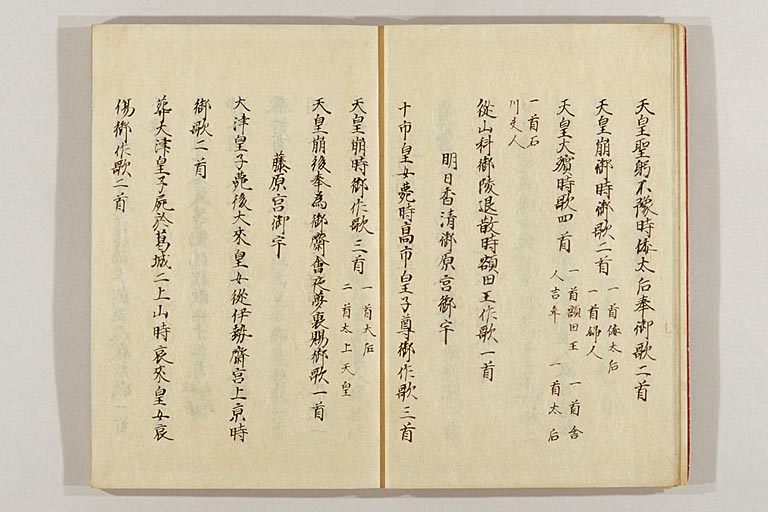 天皇聖躬不豫時倭太后奉御歌二首
天皇崩御時御歌二首 一首倭太后 一首婦人
天皇大殯時歌四首 一首額田王 一首舍人吉年 一首太后
一首石川夫人
從山科御陵退散時額田王作歌一首
明日香清御原宮御宇
十市皇女薨時高市皇子尊御作歌三首
天皇崩時御作歌三首 一首大后 二首太上天皇
天皇崩後奉為御齋會夜夢裏賜御歌一首
藤原宮御宇
大津皇子薨後大來皇女從伊勢齋宮上京時
御歌二首
葬大津皇子屍於葛城二上山時哀來皇女哀
傷御作歌二首